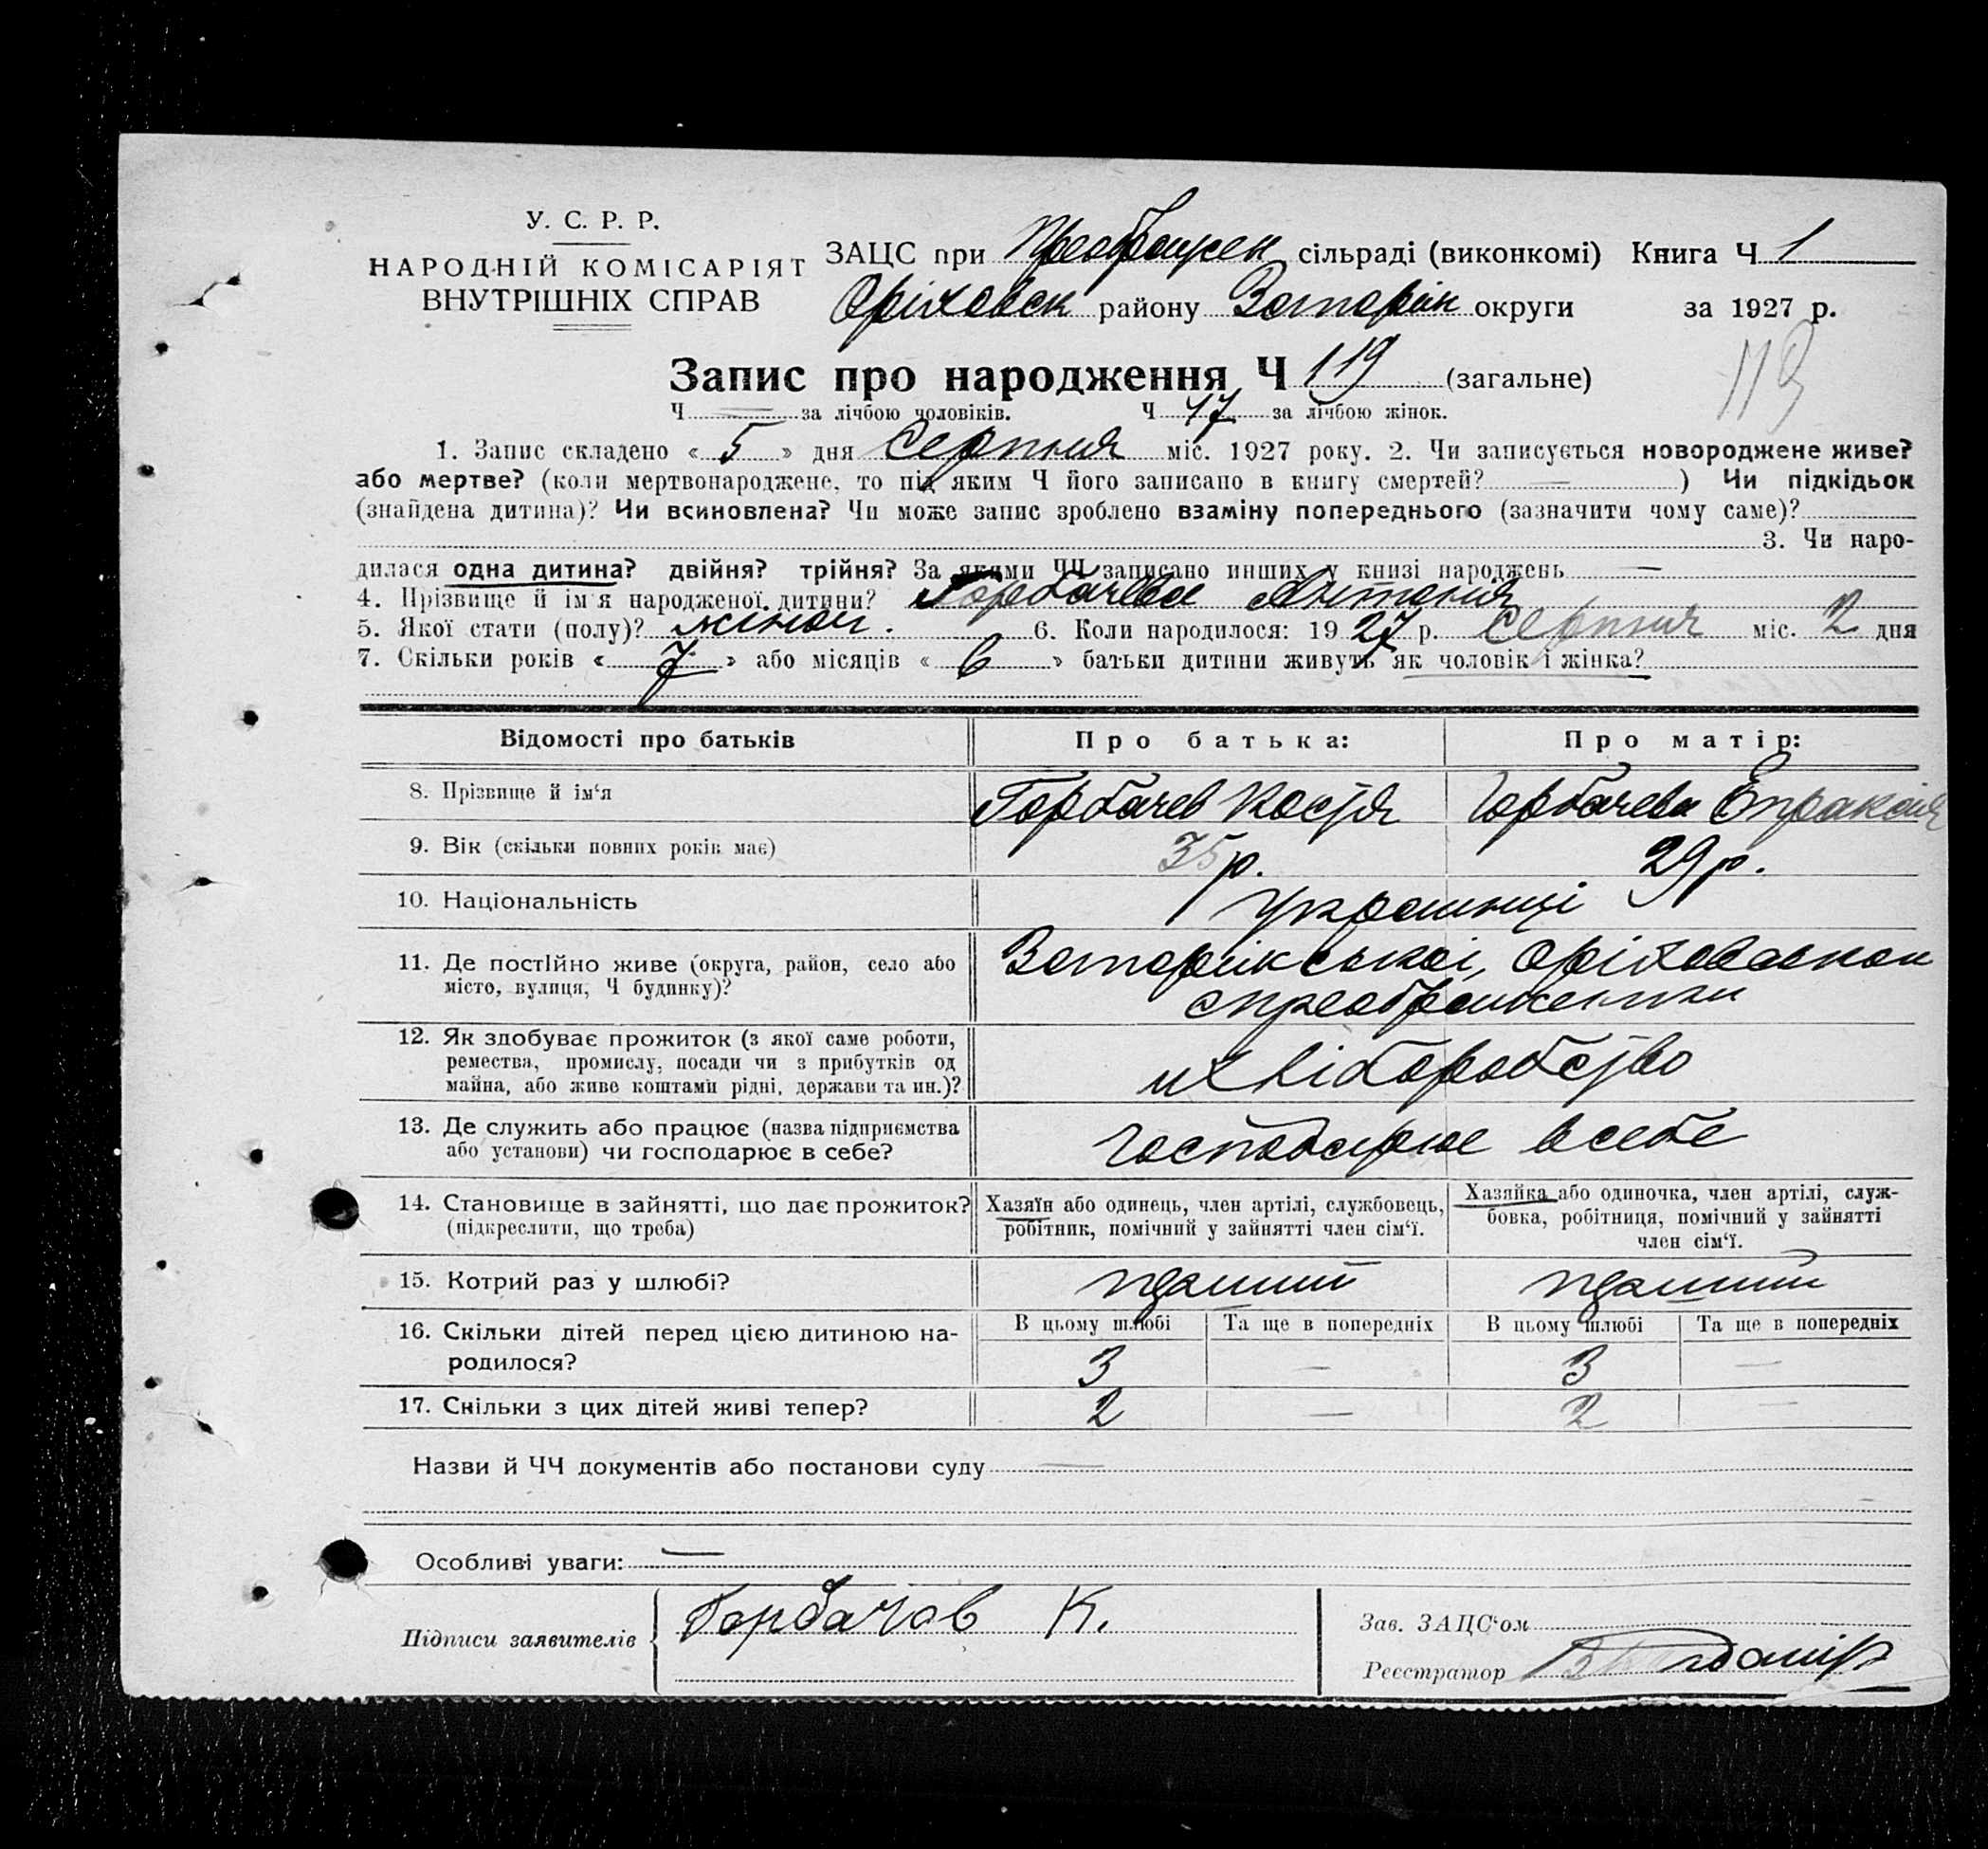 У. С. Р. Р.
НАРОДНІЙ КОМІСАРІЯТ
ВНУТРІШНІХ СПРАВ
ЗАЦС при Преображен сільраді (виконкомі) Книга Ч 1
Оріховск району Запоріж округи за 1927 р.
Запис про народження Ч 119 (загальне)
119
Ч — за лічбою чоловіків. Ч 47 за лічбою жінок.
1. Запис складено « 5 » дня Серпня міс. 1927 року. 2. Чи записується новороджене живе?
або мертве? (коли мертвонароджене, то під яким Ч його записано в книгу смертей? — ) Чи підкідьок
(знайдена дитина)? Чи всиновлена? Чи може запис зроблено взаміну попереднього (зазначити чому саме)?
3. Чи наро-
дилася одна дитина? двійня? трійня? За якими ЧЧ записано инших у книзі народжень —
4. Прізвище й ім'я народженої дитини? Горбачева Антонія
5. Якої стати (полу)? жіноч. 6. Коли народилося: 1927 р. Серпня міс. 2 дня
7. Скільки років « 7 » або місяців « 6 » батьки дитини живуть як чоловік і жінка?
Відомості про батьків Про батька: Про матір:
8. Прізвище й ім'я Горбачев Костя Горбачева Епраксія
9. Вік (скільки повних років має) 35 р. 29 р.
10. Національність Українці
11. Де постійно живе (округа, район, село або
місто, вулиця, Ч будинку)?
Запоріжськоі, Оріховськои
с преображенки
12. Як здобуває прожиток (з якої саме роботи,
ремества, промислу, посади чи з прибутків од
майна, або живе коштами рідні, держави та ин.)?
хліборобство
13. Де служить або працює (назва підприємства
або установи) чи господарює в себе?
господарює в себе
14. Становище в зайнятті, що дає прожиток?
(підкреслити, що треба)
Хазяїн або одинець, член артілі, службовець,
робітник, помічний у зайнятті член сім'ї.
Хазяйка або одиночка, член артілі, служ-
бовка, робітниця, помічний у зайнятті
член сім'ї.
15. Котрий раз у шлюбі?
16. Скільки дітей перед цією дитиною на-
родилося?
В цьому шлюбі Та ще в попередніх В цьому шлюбі Та ще в попередніх
3 — 3 —
17. Скільки з цих дітей живі тепер? 2 — 2 —
Назви й ЧЧ документів або постанови суду —
Особливі уваги: —
Підписи заявителів Горбачов К.
Зав. ЗАЦС'ом
Реєстратор